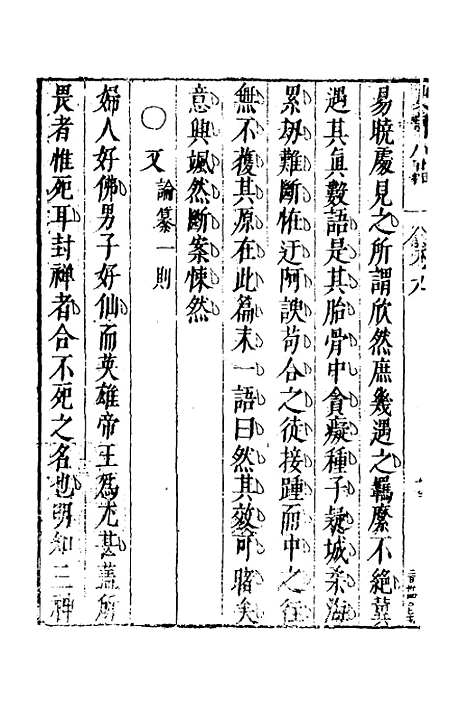 易曉處見之所謂欣然庶幾遇之羈縻不絕冀
遇其真數語是其胎骨中貪癡種子疑城柔海
累劫難斷怪迂阿諛苟合之徒接踵而中之往
無不獲其原在此篇末一語曰然其效可睹矣
意興颯然斷案悚然
○又論纂一則
婦人好佛男子好仙而英雄帝王爲尤甚蓋所
畏者惟死耳封禪者合不死之名也明知三神